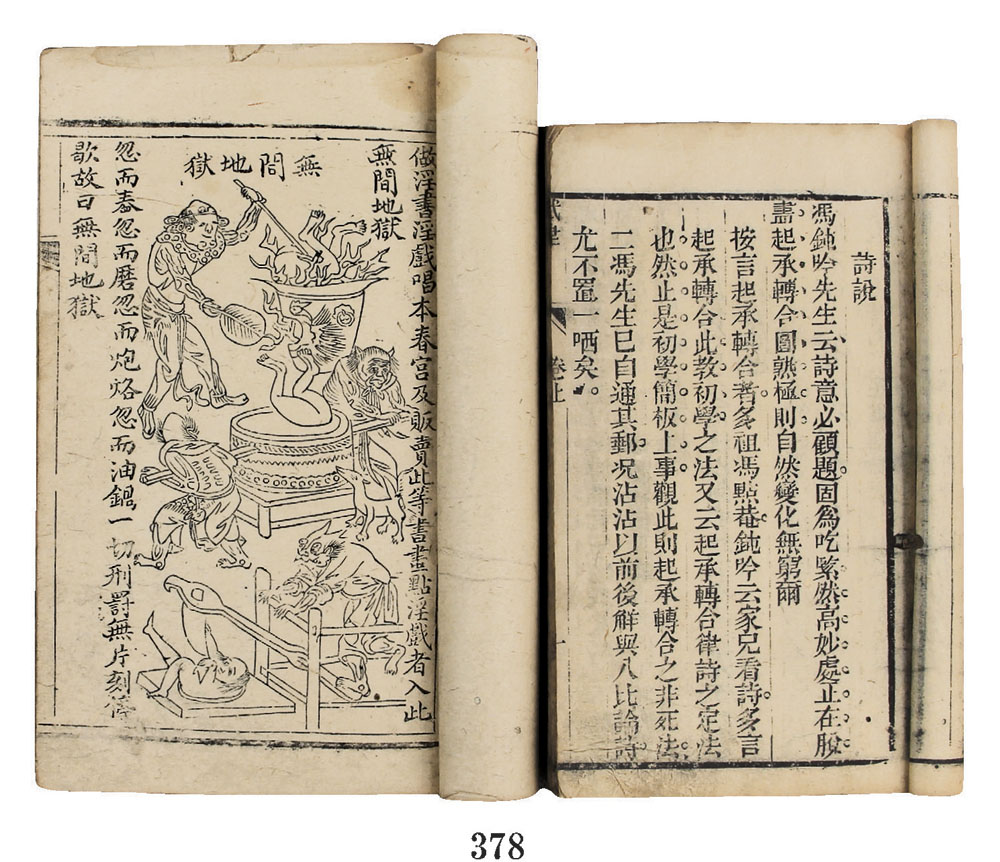 做淫書淫戲唱本春宮及販賣此等書畫點淫戲者入此
無間地獄
無間地獄
忽而舂忽而磨忽而炮烙忽而油鍋一切刑罰無片刻停
歇故曰無間地獄
詩說
馮鈍吟先生云詩意必顧題固為吃緊然高妙處止在脫
盡起承轉合圓熟極則自然變化無窮爾
按言起承轉合者多祖馮黙菴鈍吟云家兄看詩多言
起承轉合此教初學之法又云起承轉合律詩之定法
也然止是初學簡板上事觀此則起承轉合之非死法
二馮先生已自通其郵況沾沾以前後解與八比論詩
尤不置一哂矣
卷上
一
378